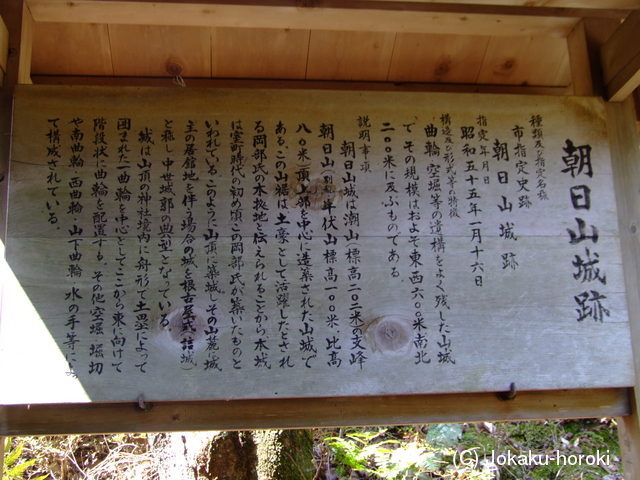 朝日山城跡
種類及び指定名称
市指定史跡
朝日山城跡
指定年月日
昭和五十五年一月十六日
構造及び形式等の特徴
曲輪、空堀等の遺構をよく残した山城
で、その規模はおよそ東西六〇〇米南北
二〇〇米に及ぶものである。
説明事項
朝日山城は潮山(標高二〇二米)の支峰
朝日山(別名牛伏山標高一〇〇米、比高
八〇米)頂上部を中心に造築された山城で
ある。この山裾は土豪として活躍したとされ
る岡部氏の本拠地と伝えられることから本城
は室町時代の初め頃この岡部氏が築いたものと
いわれている。このように山頂に築城しその山麓に城
主の居館地を伴う場合の城を根古屋式詰城
と称し中世城郭の典型となっている。
城は山頂の神社境内に舟形で土塁によって
囲まれた一曲輪を中心としてここから東に向けて
階段状に曲輪を配置する。その他、空堀、堀切
や南曲輪、西曲輪、山下曲輪、水の手等によっ
て構成されている。
(C) Jokaku-horoki